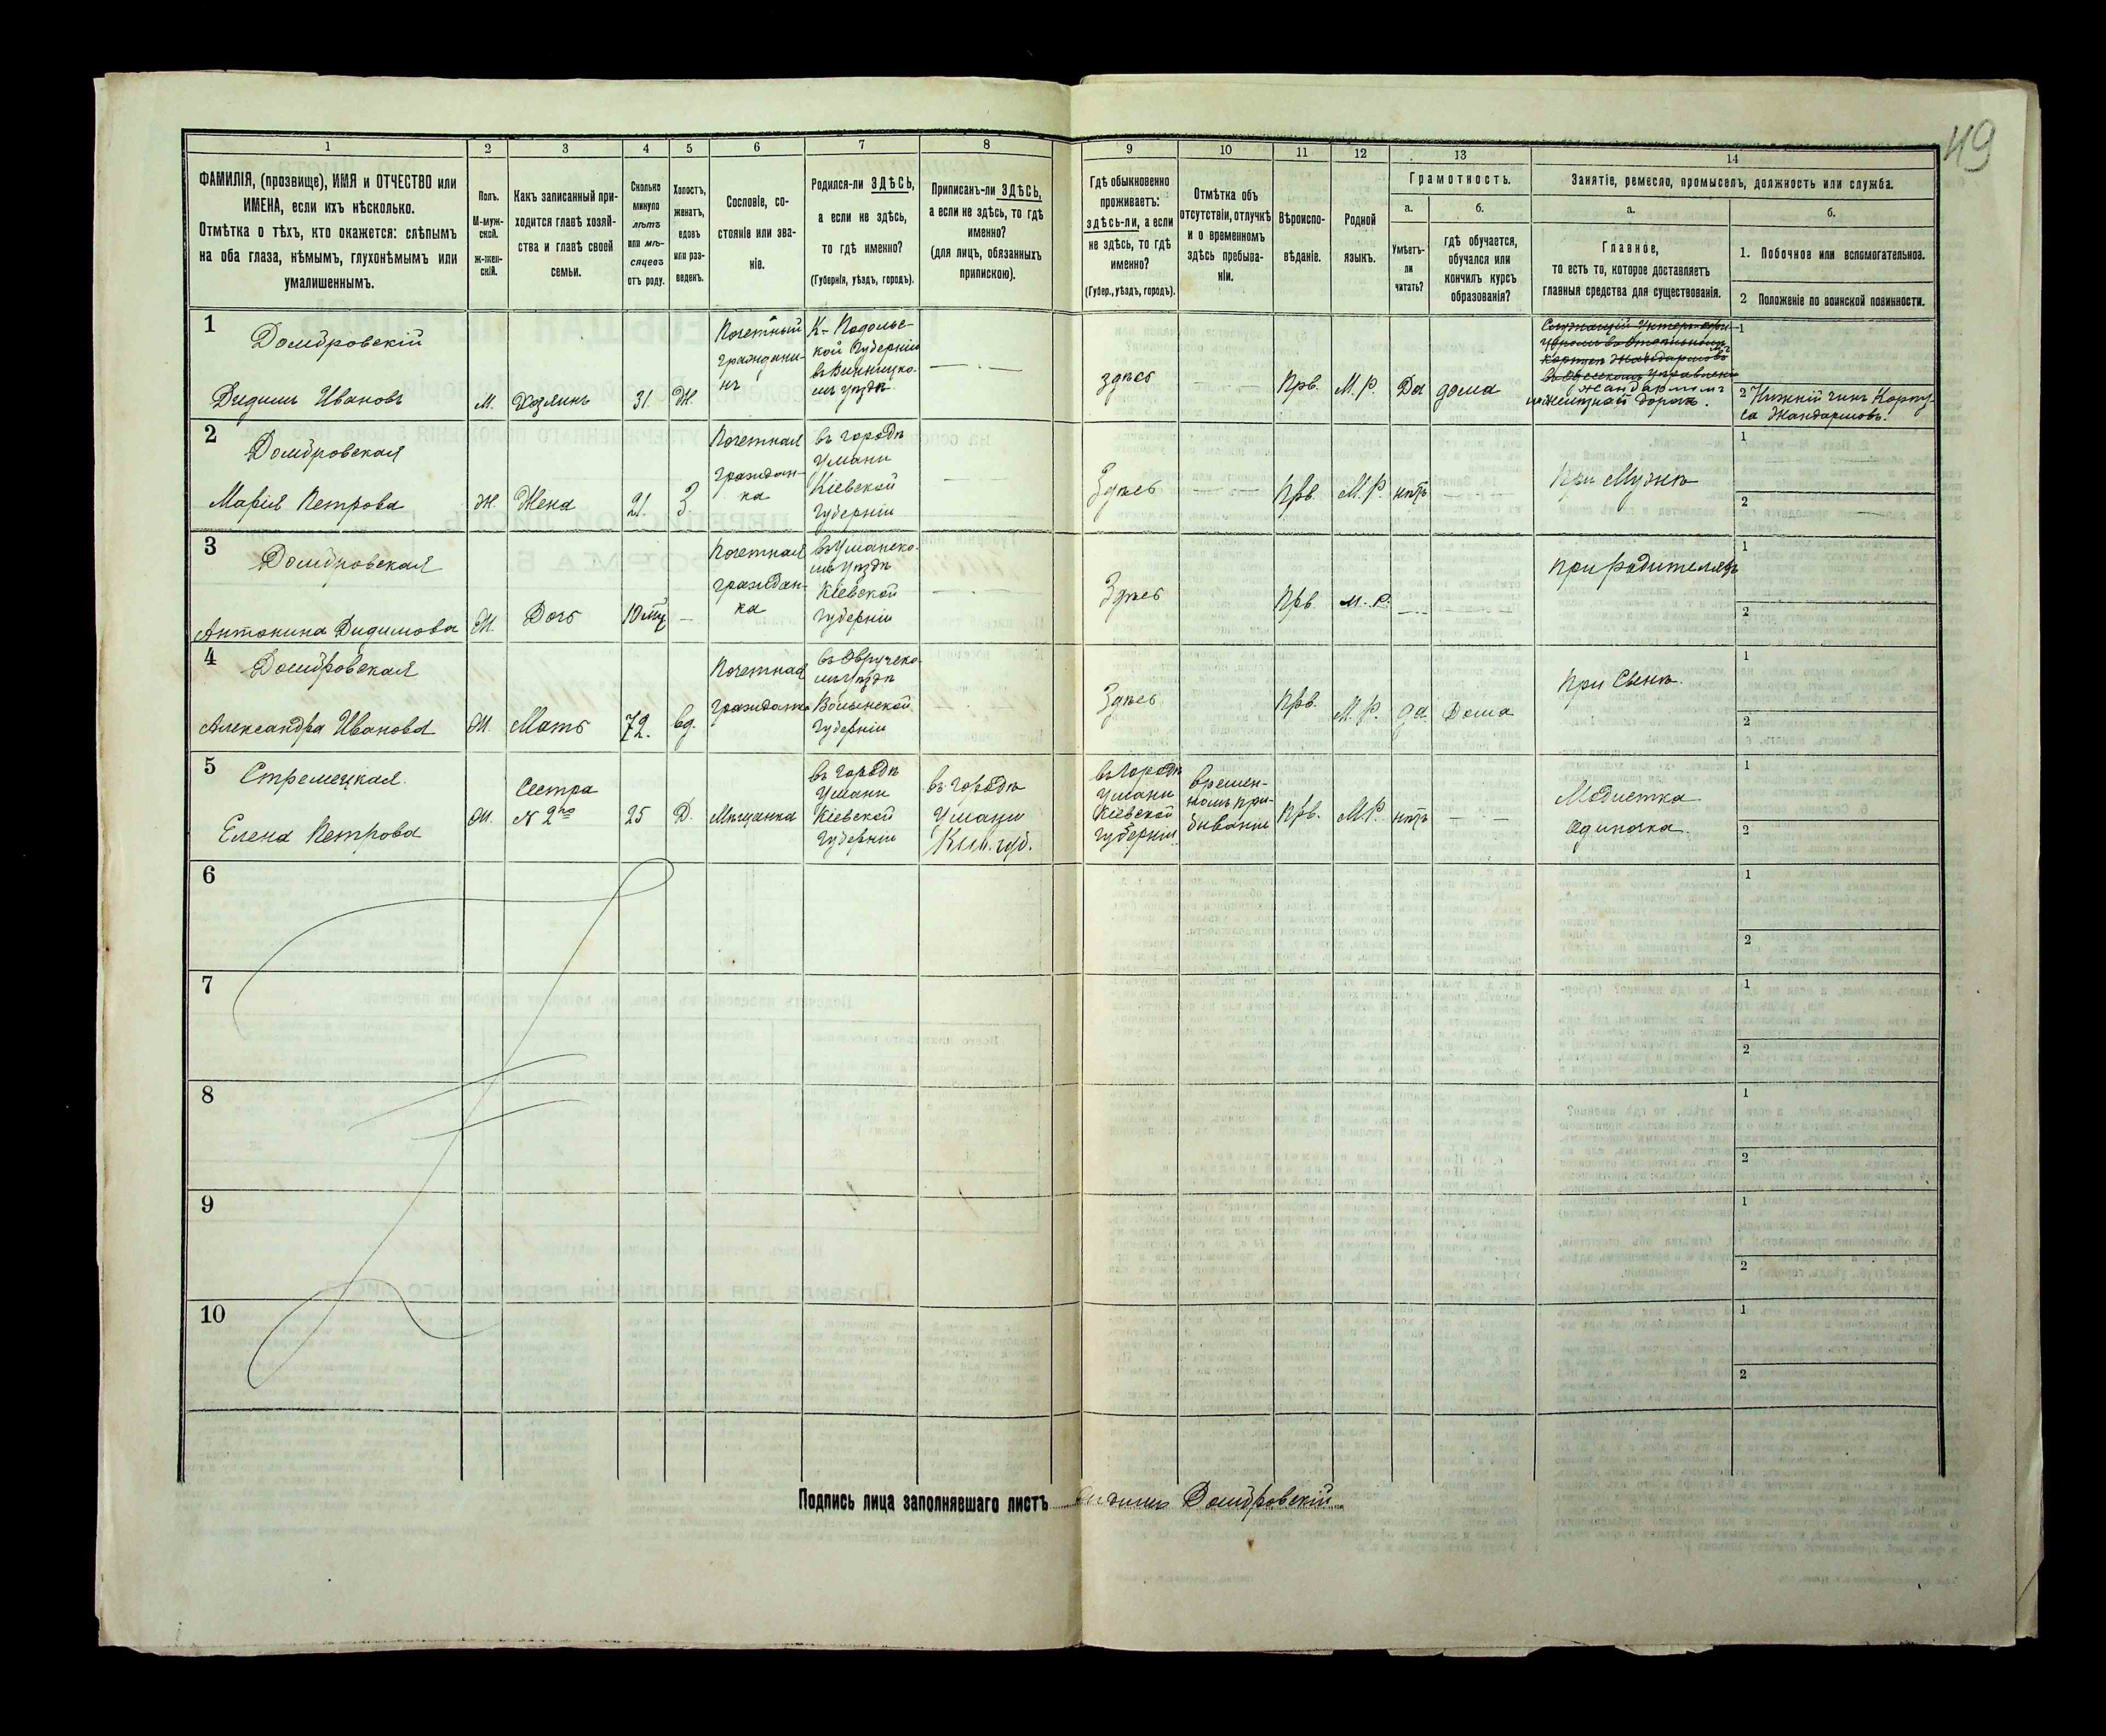 49
1
2
3
4
5
6
7
8
9
10
11
12
13
14
ФАМИЛІЯ, (прозвище), ИМЯ и ОТЧЕСТВО или
ИМЕНА, если ихъ нѣсколько.
Отмѣтка о тѣхъ, кто окажется: слѣпымъ
на оба глаза, нѣмымъ, глухонѣмымъ или
умалишеннымъ.
Полъ.
М-муж-
ской.
ж-жен-
скій.
Какъ записанный при-
ходится главѣ хозяй-
ства и главѣ своей
семьи.
Сколько
минуло
лѣтъ
или мѣ-
сяцевъ
отъ роду.
Холостъ,
женатъ,
вдовъ
или раз-
веденъ.
Сословіе, со-
стояніе или зва-
ніе.
Родился-ли ЗДѢСЬ,
а если не здѣсь,
то гдѣ именно?
(Губернія, уѣздъ, городъ).
Приписанъ-ли ЗДѢСЬ,
а если не здѣсь, то гдѣ
именно?
(для лицъ, обязанныхъ
припискою).
Гдѣ обыкновенно
проживаетъ:
здѣсь-ли, а если
не здѣсь, то гдѣ
именно?
(Губер., уѣздъ, городъ).
Отмѣтка объ
отсутствіи, отлучкѣ
и о временномъ
здѣсь пребыва-
ніи.
Вѣроиспо-
вѣданіе.
Родной
языкъ.
Грамотность.
а.
Умѣетъ-
ли
читать?
б.
гдѣ обучается,
обучался или
кончилъ курсъ
образованія?
Занятіе, ремесло, промыселъ, должность или служба.
а.
Главное,
то есть то, которое доставляетъ
главныя средства для существованія.
б.
1. Побочное или вспомогательное.
2 Положеніе по воинской повинности.
1
Домбровскій
Дидимъ Ивановъ
М.
Хозяинъ
31.
Ж.
Почетный
граждани-
нъ
К-Подольс-
кой Губерніи
въ Винницко-
мъ уѣздѣ
здѣсь
Прв.
М.Р.
Да
дома
жандармомъ
желѣзной дорогѣ.
1
2 Нижній чинъ Корпу-
са Жандармовъ.
2
Домбровская
Марія Петрова
Ж.
Жена
21.
З.
Почетная
граждан-
ка
въ городѣ
Умани
Кіевской
губерніи
Здѣсь
Прв.
М.Р.
нѣтъ
При Мужѣ
1
2
3
Домбровская
Антонина Дидимова
Ж.
Дочь
10 мѣ
Почетная
граждан-
ка
въ Уманско-
мъ уѣздѣ
Кіевской
губерніи
Здѣсь
Прв.
М.Р.
При родителяхъ
1
2
4
Домбровская
Александра Иванова
Ж.
Мать
72.
вд.
Почетная
гражданка
въ Овручско-
мъ уѣздѣ
Волынской
губерніи
Здѣсь
Прв.
М.Р.
да.
Дома
При Сынѣ.
1
2
5
Стремецкая.
Елена Петрова
Ж.
Сестра
N 2го
25
Д.
Мѣщанка
въ городѣ
Умани
Кіевской
губерніи
въ городѣ
Умани
Кіев. губ.
въ Городѣ
Умани
Кіевской
губерніи
времен-
номъ при-
бываніи
Прв.
М.Р.
нѣтъ
Модистка
одиночка.
1
2
6
1
2
7
1
2
8
1
2
9
1
2
10
1
2
Подпись лица заполнявшаго листъ Дидимъ Домбровскій